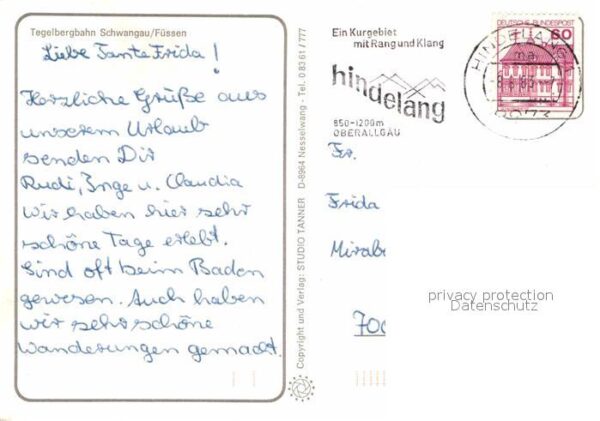 Tegelbergbahn Schwangau/Füssen
Liebe Tante Frida!
Herzliche Grüße aus
unserem Urlaub
senden Dir
Rudi, Inge u. Claudia
Wir haben hier sehr
schöne Tage erlebt.
Sind oft beim Baden
gewesen. Auch haben
wir sehr schöne
Wanderungen gemacht.
Copyright und Verlag: STUDIO TANNER D-8964 Nesselwang - Tel. 0 83 61 / 777
Ein Kurgebiet
mit Rang und Klang
hindelang
850-1200m
OBERALLGÄU
DEUTSCHE BUNDESPOST
60
HINDELANG
ma
Fr.
Frida
Mirab
700
privacy protection
Datenschutz